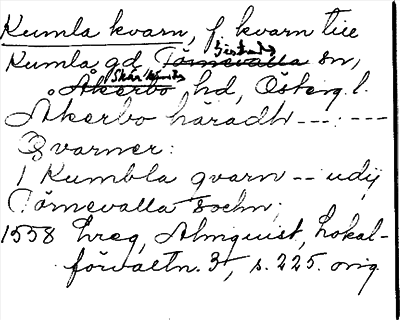 Kumla kvarn, f. kvarn till
Gistads
Kumla gd, Törnevalla sn,
Skärkinds
Åkerbo hd, Österg. l.
Åkerbo häradh --- . ---
Qvarner:
1 Kumbla qvarn -- udij
Törnevalla sochn;
1558 hreg, Almquist, Lokal-
förvaltn. 3, s. 225. orig.